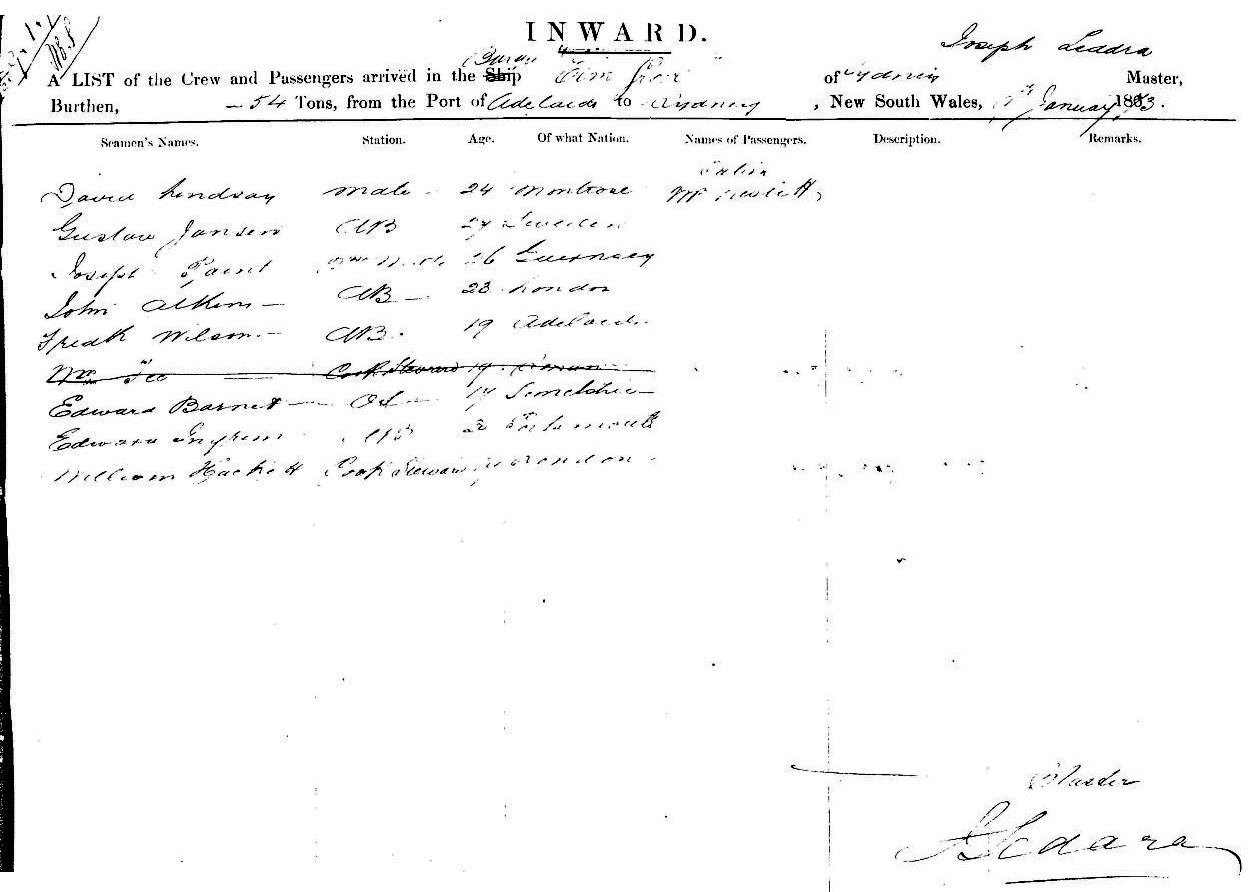 INWARD.
Joseph Leddra
A LIST of the Crew and Passengers arrived in the Ship of Sydney Master,
Burthen, 54 Tons, from the Port of Adelaide to Sydney, New South Wales, January 1883.
Seamen's Names. Station. Age. Of what Nation. Names of Passengers. Description. Remarks.
Cabin
David Lindsay Mate 24 Montrose Mr
Gustav Jansen AB 27 Sweden
Joseph 26 Guernsey
John Atkins AB 23 London
Fredk Wilson AB. 19 Adelaide
Cook Steward 19
Edward Barnet OS 17
Edward Ingram AB Portsmouth
William Hackett Cook Steward London
Master
J Leddra